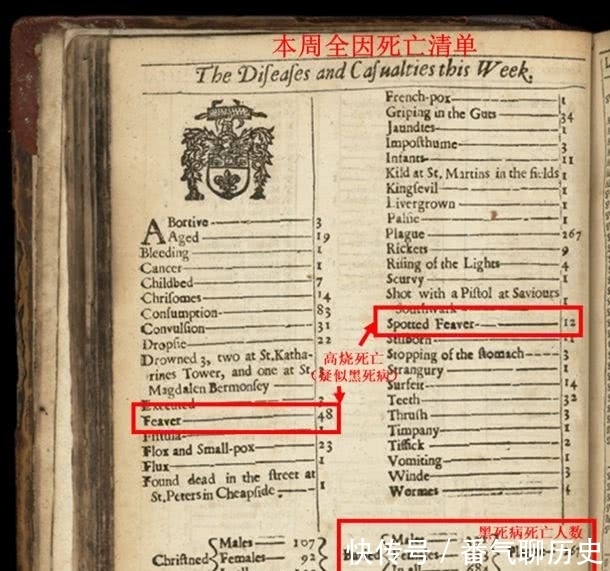 本周全因死亡清单
The Diſeaſes and Caſualties this Week.
ABortive 3
Aged 19
Bleeding 1
Cancer 1
Childbed 7
Chriſomes 14
Conſumption 83
Convulſion 31
Dropſie 22
Drowned 3, two at St. Katha-
rines Tower, and one at St.
Magdalen Bermonſey 3
Executed
Feaver 48
Fiſtula 1
Flox and Small-pox 23
Flux 1
Found dead in the ſtreet at
St. Peters in Cheapſide. 1
French-pox 1
Griping in the Guts 34
Jaundies 1
Impoſthume 3
Infants 11
Kild at St. Martins in the fields 1
Kingſevil 1
Livergrown 1
Palſie 1
Plague 267
Rickets 9
Riſing of the Lights 4
Scurvy 1
Shot with a Piſtol at Saviours
Southwark
Spotted Feaver 12
Stilborn 11
Stopping of the ſtomach 3
Strangury 1
Surfeit 14
Teeth 32
Thruſh 3
Timpany 1
Tiſſick 2
Vomiting 1
Winde 3
Wormes 4
高烧死亡
(疑似黑死病)
黑死病死亡人数
Chriſtned
Males 107
Females 92
In all
Males
In all
快传号 / 番气聊历史